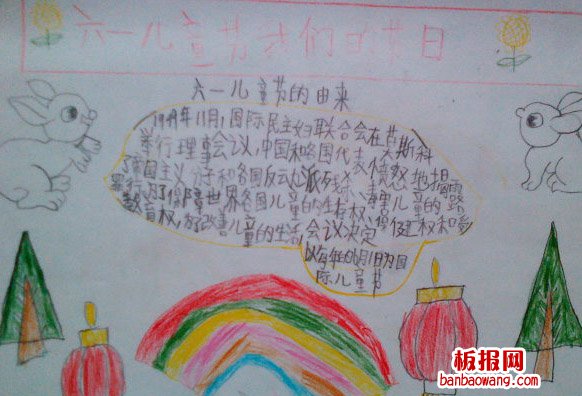 六一儿童节我们的节日
六一儿童节的由来
1949年11月,国际民主妇联合会在莫斯科
举行理事会议,中国和各国代表愤怒地揭露
帝国主义分子和各国反动派残杀、毒害儿童的
罪行。为了保障世界各国儿童的生存权、保健权和受
教育权,为了改善儿童的生活,会议决定
以每年的6月1日为国
际儿童节
板报网
banbaowang.com